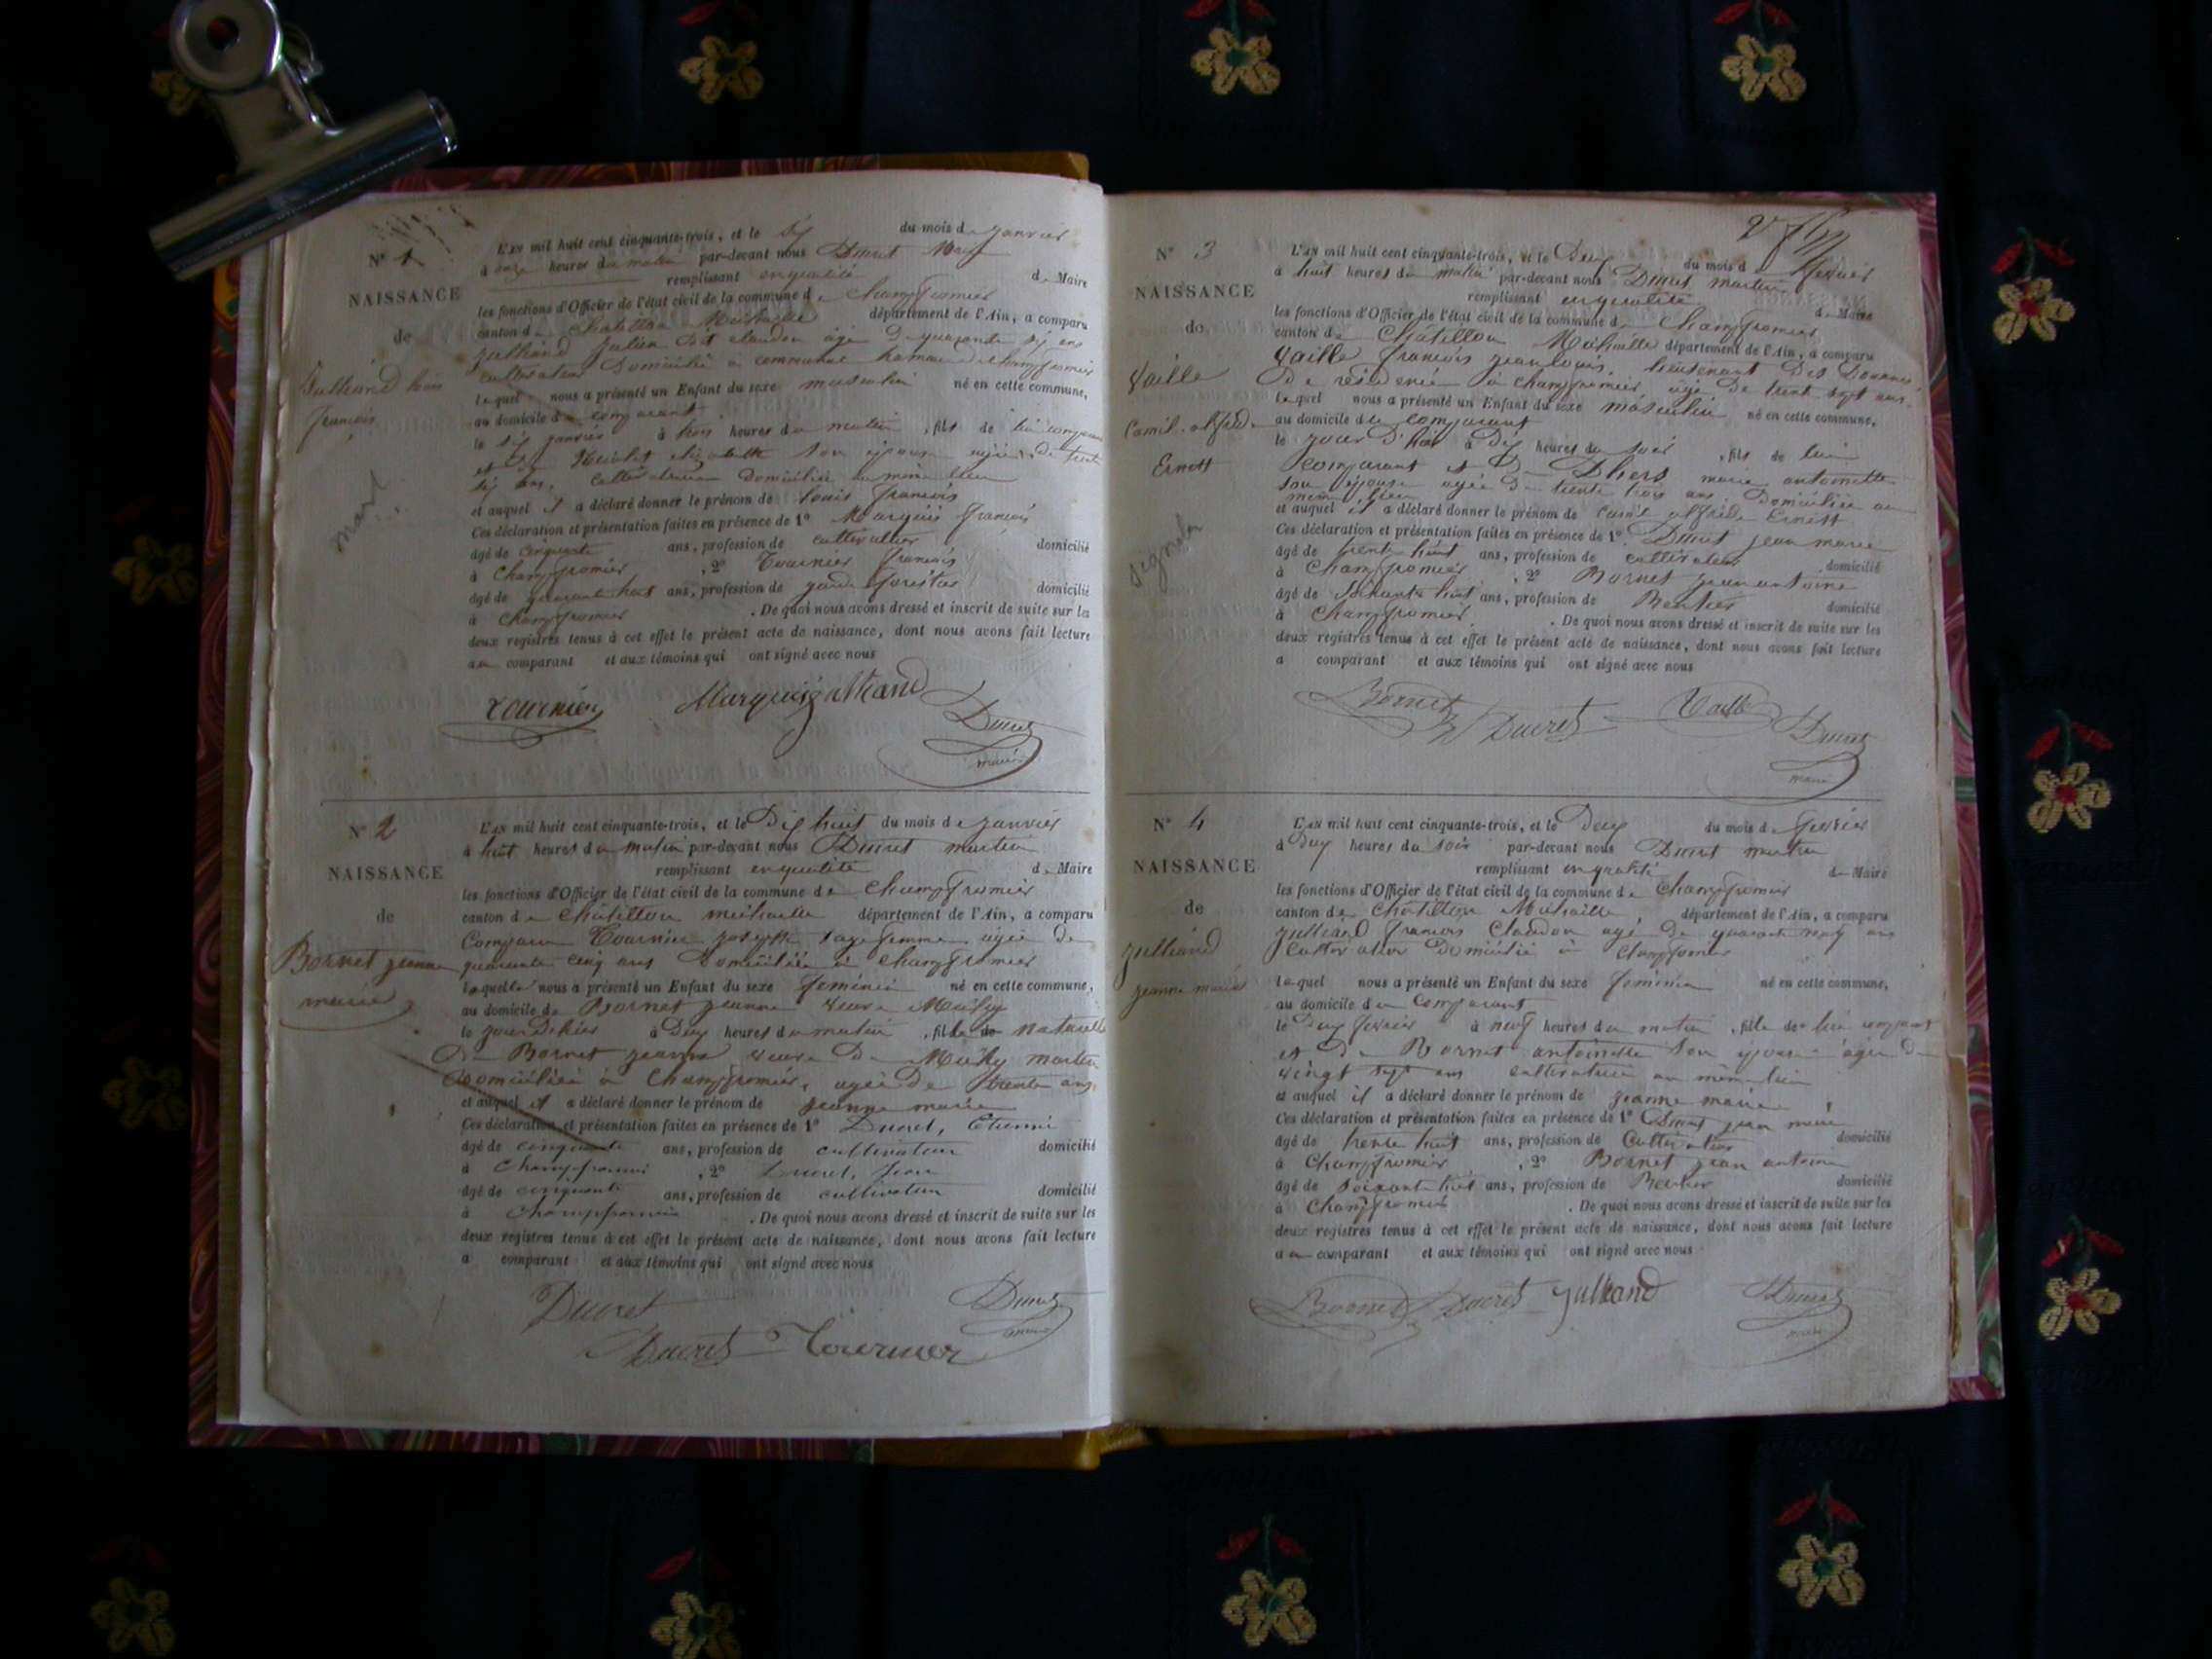 N° 1
NAISSANCE
de
Julliand louis
françois
L'AN mil huit cent cinquante-trois, et le six du mois de janvier
à onze heures du matin par-devant nous Ducret
remplissant en qualité de Maire
les fonctions d'Officier de l'état civil de la commune de Champfromier
canton de Chatillon Michaille département de l'Ain, a comparu
Julliand Julien dit claudon âgé de quarante six ans
cultivateur Domicilié à hameau de champfromier
lequel nous a présenté un Enfant du sexe masculin né en cette commune,
au domicile du comparant
le six janvier à trois heures du matin, fils de lui comparant
et de elizabeth son épouse agée de trente
six ans, cultivatrice domiciliée au même lieu
et auquel il a déclaré donner le prénom de louis françois
Ces déclaration et présentation faites en présence de 1° Marquis françois
âgé de cinquante ans, profession de cultivateur domicilié
à Champfromier, 2° Tournier françois
âgé de quarante huit ans, profession de garde forestier domicilié
à Champfromier. De quoi nous avons dressé et inscrit de suite sur les
deux registres tenus à cet effet le présent acte de naissance, dont nous avons fait lecture
au comparant et aux témoins qui ont signé avec nous
Tournier Marquis Julliand Ducret
maire
N° 2
NAISSANCE
de
Bornet jeanne
marie
L'AN mil huit cent cinquante-trois, et le Dix huit du mois de janvier
à huit heures du matin par-devant nous Ducret martin
remplissant en qualité de Maire
les fonctions d'Officier de l'état civil de la commune de Champfromier
canton de Châtillon michaille département de l'Ain, a comparu
Comparu Tournier josephte sage femme agée de
quarante cinq ans Domiciliée à champfromier
laquelle nous a présenté un Enfant du sexe féminin né en cette commune,
au domicile de Bornet jeanne veuve
le jour d'hier à Deux heures du matin, fille de naturelle
De Bornet jeanne veuve De martin
Domiciliée à Champfromier, agée De trente ans
et auquel il a déclaré donner le prénom de jeanne marie
Ces déclaration et présentation faites en présence de 1° Ducret, Etienne
âgé de cinquante ans, profession de cultivateur domicilié
à Champfromier, 2° Ducret, Jean
âgé de cinquante ans, profession de cultivateur domicilié
à Champfromier. De quoi nous avons dressé et inscrit de suite sur les
deux registres tenus à cet effet le présent acte de naissance, dont nous avons fait lecture
a comparant et aux témoins qui ont signé avec nous
Ducret Ducret
maire
Ducret Tournier
N° 3
NAISSANCE
de
Vaille
Camil. alfred.
Ernest
L'AN mil huit cent cinquante-trois, et le Deux du mois de février
à huit heures du matin par-devant nous Ducret martin
remplissant en qualité de Maire
les fonctions d'Officier de l'état civil de la commune de Champfromier
canton de Châtillon Michaille département de l'Ain, a comparu
Vaille françois jean louis, lieutenant Des Douanes,
De résidence à champfromier agé De trente sept ans,
lequel nous a présenté un Enfant du sexe masculin né en cette commune,
au domicile du comparant
le jour D'hier à Dix heures du soir, fils de lui
comparant et De Dhers marie antoinette
son épouse agée De trente trois ans. Domiciliée au
même lieu
et auquel il a déclaré donner le prénom de Camil alfrède Ernest
Ces déclaration et présentation faites en présence de 1° Ducret jean marie
âgé de trente huit ans, profession de cultivateur domicilié
à Champfromier, 2° Bornet jean antoine
âgé de soixante huit ans, profession de Rentier domicilié
à Champfromier. De quoi nous avons dressé et inscrit de suite sur les
deux registres tenus à cet effet le présent acte de naissance, dont nous avons fait lecture
a comparant et aux témoins qui ont signé avec nous
Bornet Ducret Vaille Ducret
maire
N° 4
NAISSANCE
de
Julliand
jeanne marie
L'AN mil huit cent cinquante-trois, et le Deux du mois de février
à Deux heures du soir par-devant nous Ducret martin
remplissant en qualité de Maire
les fonctions d'Officier de l'état civil de la commune de Champfromier
canton de Châtillon Michaille, département de l'Ain, a comparu
Julliand françois Claudon agé De quarante neuf ans
Cultivateur Domicilié à Champfromier
lequel nous a présenté un Enfant du sexe féminin né en cette commune,
au domicile du Comparant
le Deux février à neuf heures du matin, fille de lui comparant
et De Bornet antoinette son épouse agée De
vingt sept ans cultivatrice au même lieu
et auquel il a déclaré donner le prénom de jeanne marie
Ces déclaration et présentation faites en présence de 1° Ducret jean marie
âgé de trente huit ans, profession de Cultivateur domicilié
à Champfromier, 2° Bornet jean antoine
âgé de soixante huit ans, profession de Rentier domicilié
à Champfromier. De quoi nous avons dressé et inscrit de suite sur les
deux registres tenus à cet effet le présent acte de naissance, dont nous avons fait lecture
au comparant et aux témoins qui ont signé avec nous
Bornet Ducret Julliand Ducret
maire